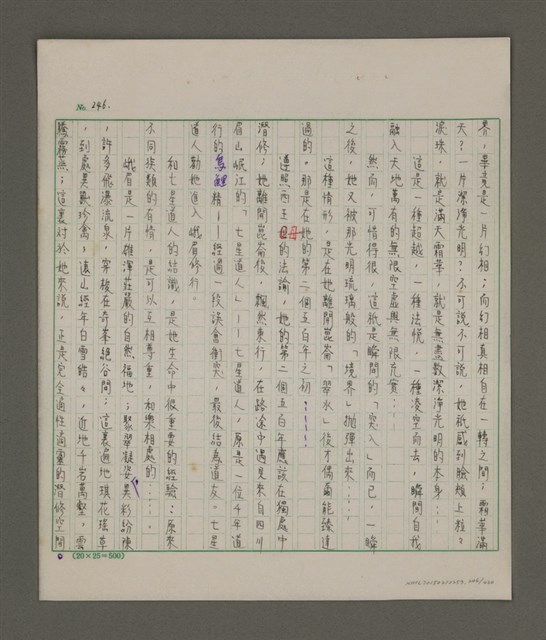 No. 246.
界，畢竟是一片幻相；而幻相真相自在一轉之間；霜華滿
天？一片潔淨光明？不可說不可說，她祇感到臉頰上粒粒
淚珠，就是滿天霜華，就是無盡數潔淨光明的本身……
這是一種超越，一種法悅，一種凌空而去，瞬間自我
融入天地萬有的無限空虛與無限充實……
然而，可惜得很，這祇是瞬間的「突入」而已，一瞬
之後，她又被那光明琉璃般的「境界」拋彈出來……
這種情形，是在她離開崑崙「翠水」後才偶爾能臻達
過的。那是在她的第二個五百年之初……
遵照西王母的法諭，她的第二個五百年應該在獨處中
潛修；她離開崑崙後，飄然東行，在路途中遇見來自四川
眉山岷江的「七星道人」—七星道人，原是一位千年道
行的烏鯉精—經過一段誤會衝突，最後結為道友。七星
道人勸她進入峨眉修行。
和七星道人的結識，是她生命中很重要的經驗：原來
不同族類的有情，是可以互相尊重，和樂相處的……
峨眉是一片雄渾莊嚴的自然福地；聚翠凝姿異彩紛陳
，許多飛瀑流泉，穿梭在奇峯絕谷間；這裏遍地琪花瑤草
，到處異獸珍禽；遠山經年白雪皚皚，近地千岩萬壑，雲
騰霧蒸；這裏對於她來說，正是完全適性適靈的潛修空間
(20×25=500)